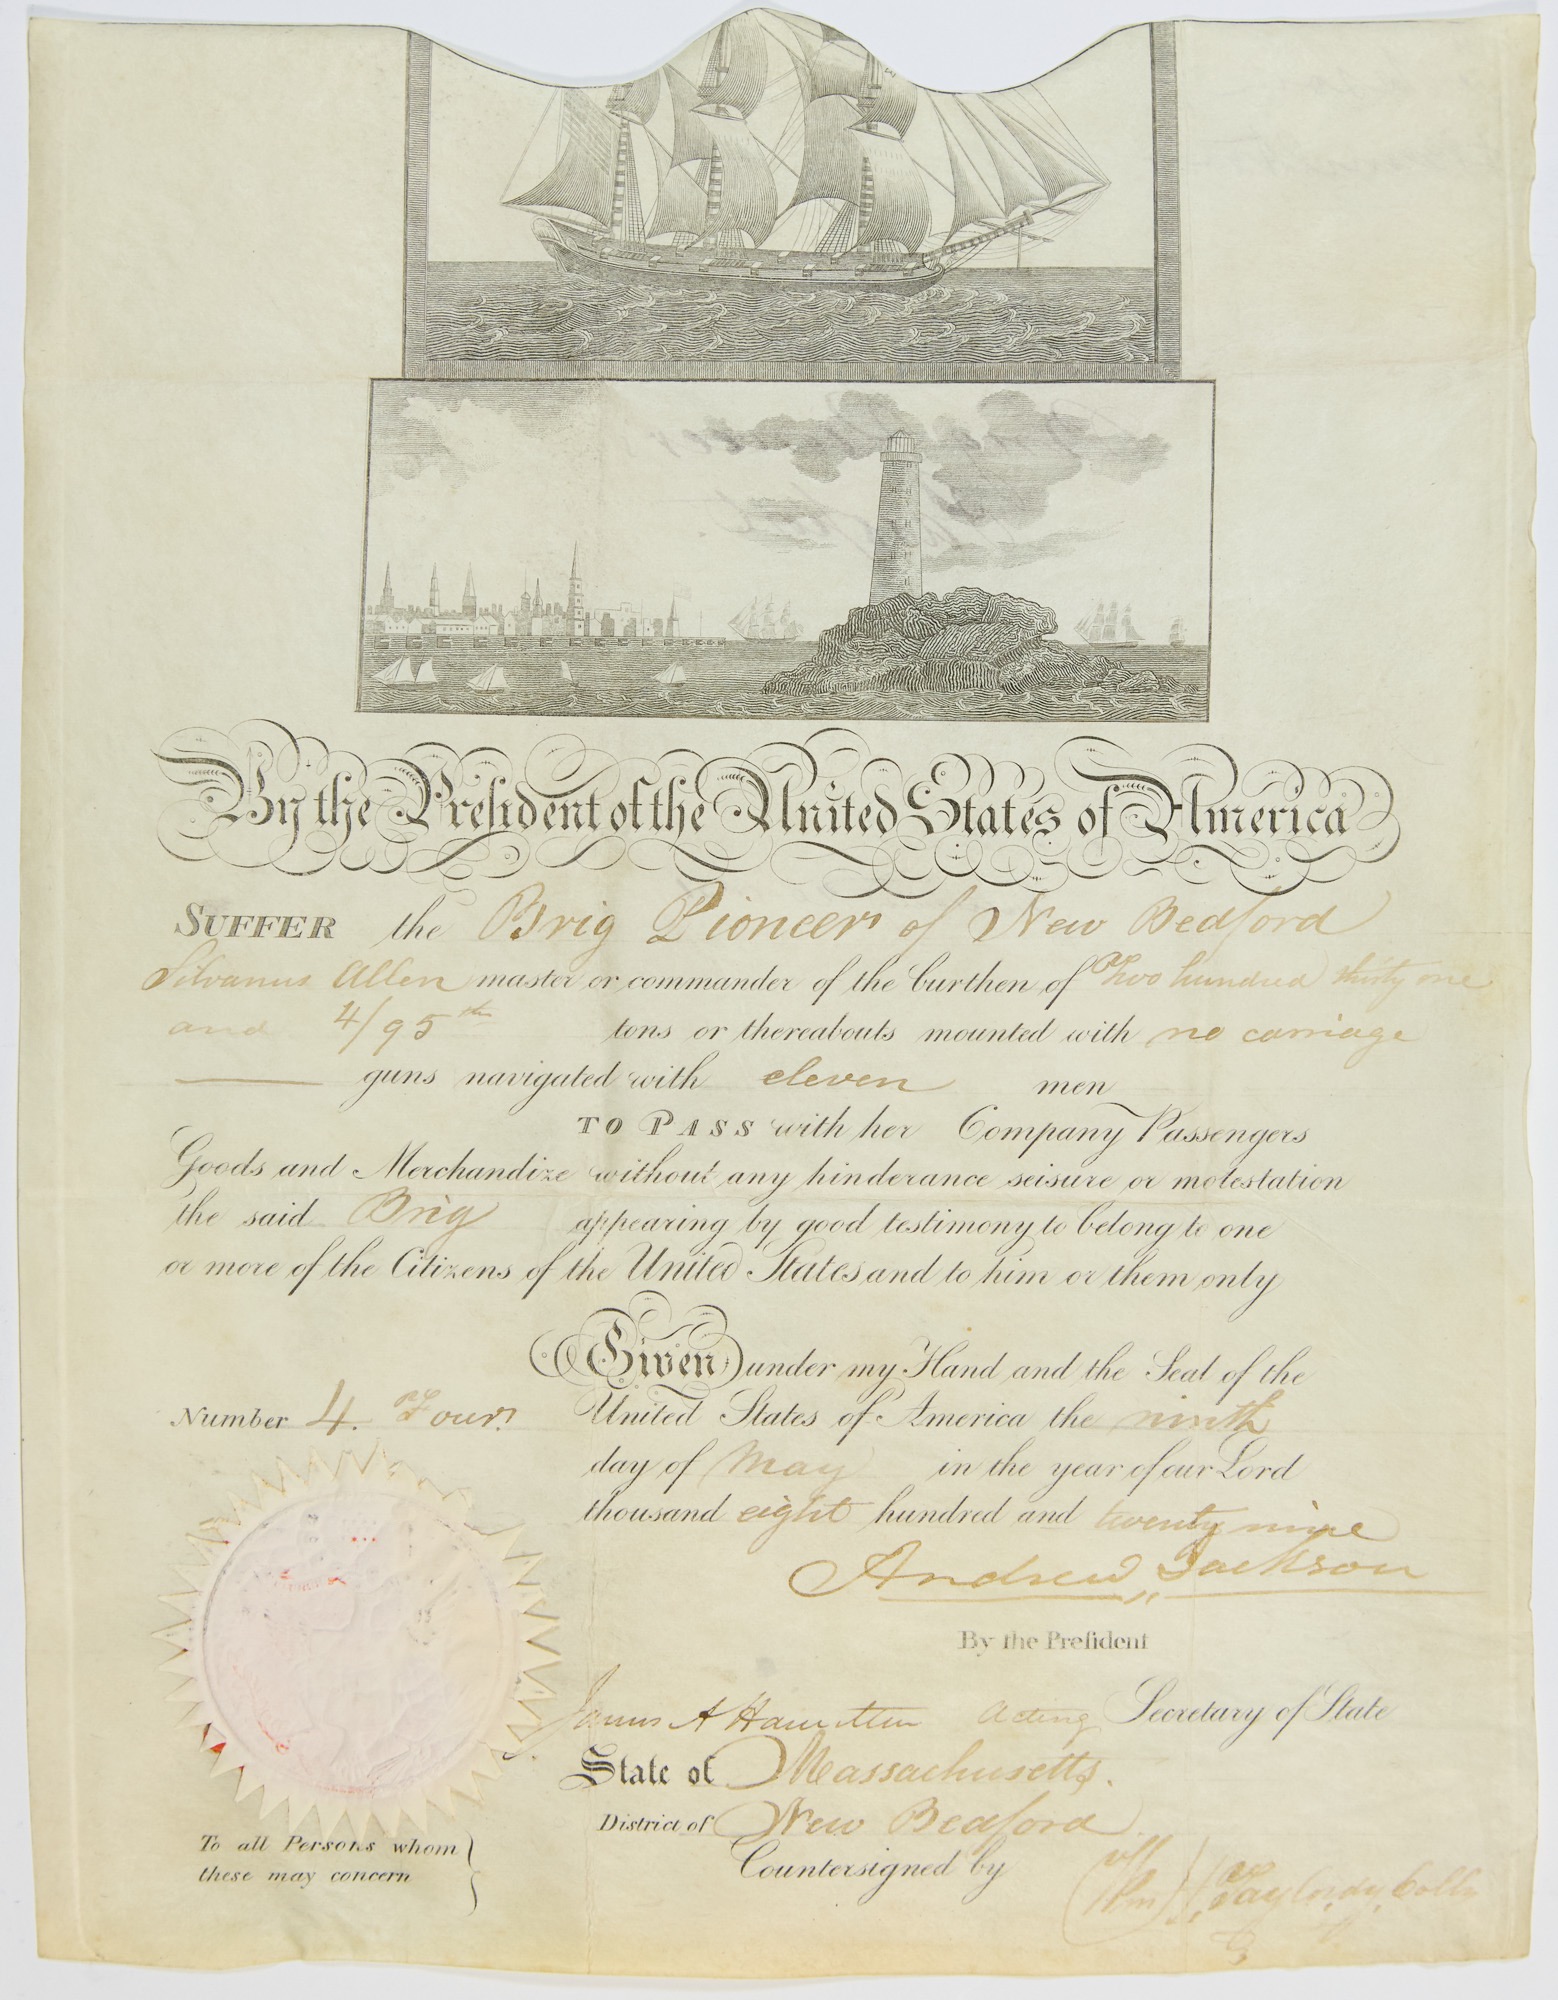 By the President of the United States of America
SUFFER the Brig Pioneer of New Bedford
Silvanus Allen master or commander of the burthen of Two hundred thirty one
and 4/95th tons or thereabouts mounted with no carriage
guns navigated with eleven men
TO PASS with her Company Passengers
Goods and Merchandize without any hinderance seisure or molestation
the said Brig appearing by good testimony to belong to one
or more of the Citizens of the United States and to him or them only
Given under my Hand and the Seal of the
Number 4. Four.
United States of America the ninth
day of May in the year of our Lord
thousand eight hundred and twenty nine
Andrew Jackson
By the President
James A Hamilton Acting Secretary of State
State of Massachusetts.
District of New Bedford
Countersigned by
To all Persons whom
these may concern